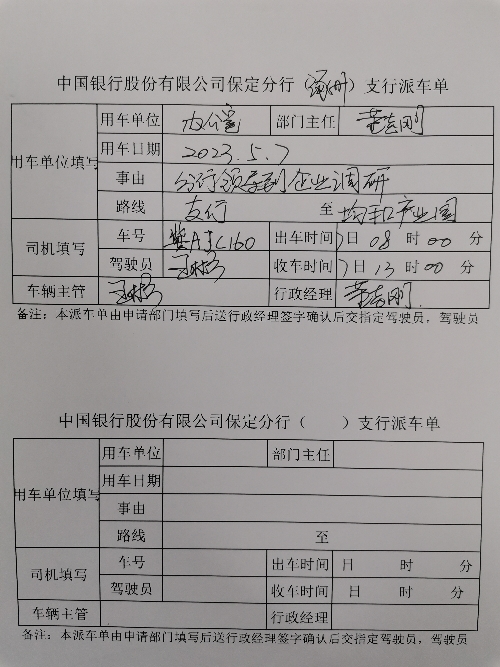 中国银行股份有限公司保定分行（涿州）支行派车单
用车单位填写 用车单位 办公室 部门主任
用车日期 2023.5.7
事由 分行领导到企业调研
路线 支行 至 产业园
司机填写 车号 出车时间 7日 08 时 00 分
驾驶员 收车时间 7日 13 时 00 分
车辆主管 行政经理
备注：本派车单由申请部门填写后送行政经理签字确认后交指定驾驶员，驾驶员
中国银行股份有限公司保定分行（ ）支行派车单
用车单位填写 用车单位 部门主任
用车日期
事由
路线 至
司机填写 车号 出车时间 日 时 分
驾驶员 收车时间 日 时 分
车辆主管 行政经理
备注：本派车单由申请部门填写后送行政经理签字确认后交指定驾驶员，驾驶员